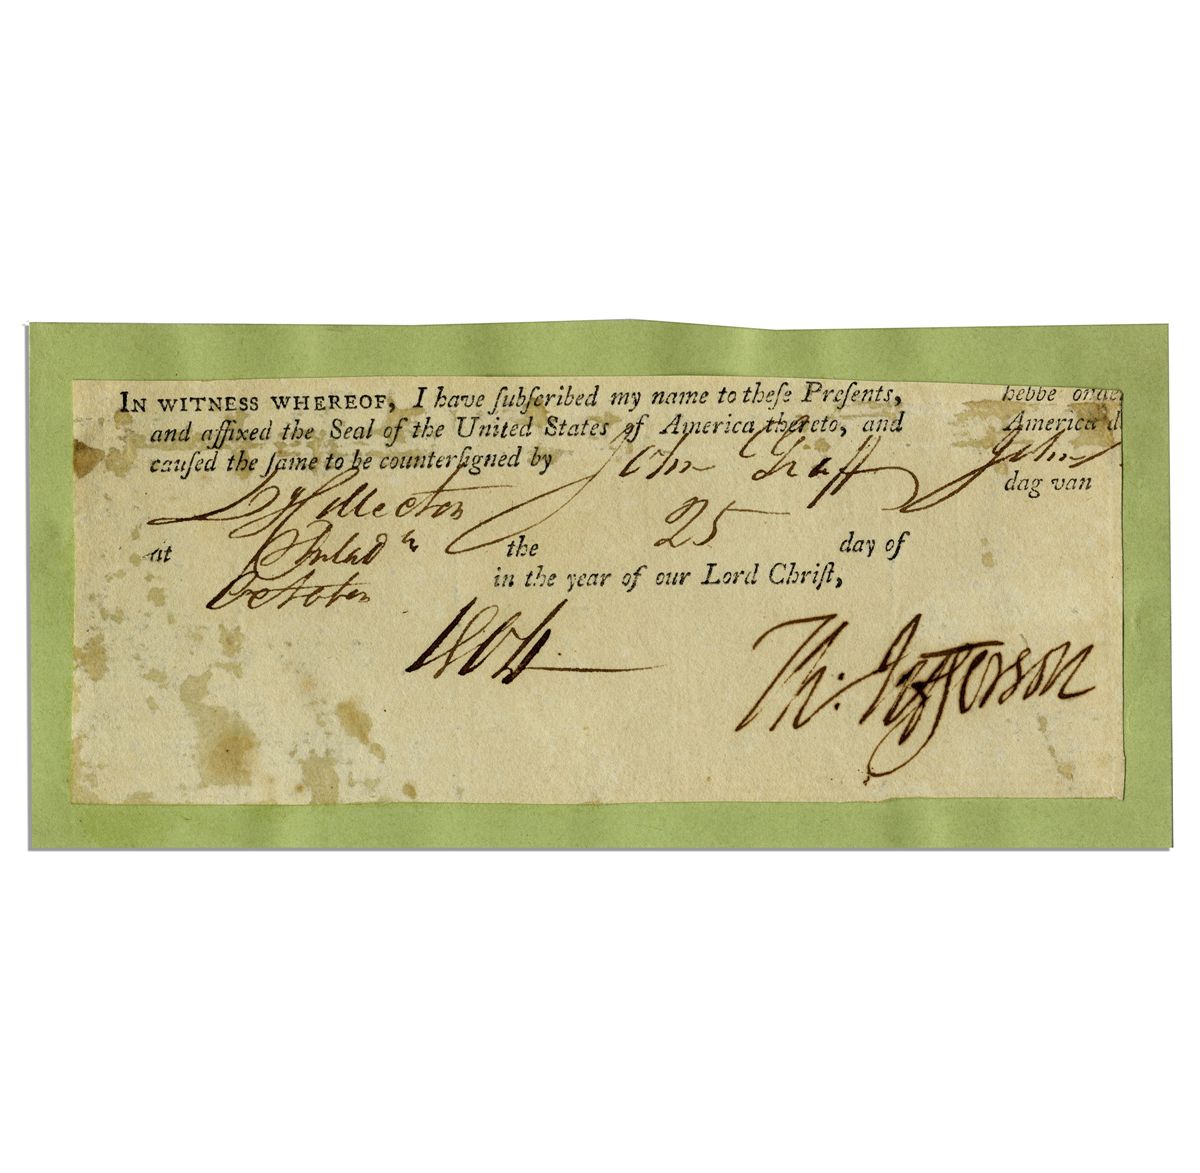 IN WITNESS WHEREOF, I have ſubſcribed my name to theſe Preſents,
and affixed the Seal of the United States of America thereto, and
cauſed the ſame to be counterſigned by John Graff
Dy Collector
at Philada the 25 day of
October in the year of our Lord Chriſt,
1804
Th: Jefferson
hebbe onde
America d
John
dag van